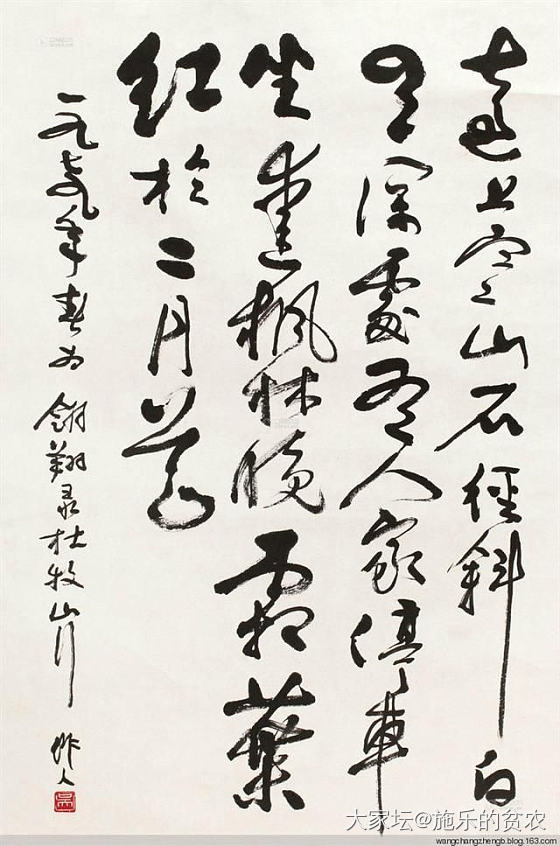 遠上寒山石徑斜白
雲深處有人家停車
坐愛楓林晚霜葉
紅於二月花
一九七九年春为翎翔录杜牧山行 作人
大家坛@施乐的贫农
wangchangzhengb.blog.163.com